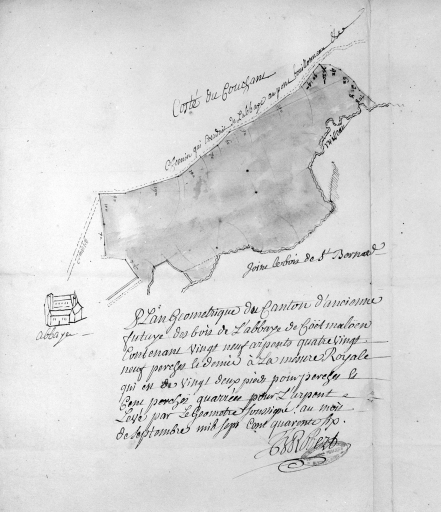 Costé du Couchant
Chemin qui conduit de l'abbaye au pont
Joint le bois de St Bernard
abbaye
Plan Geometrique du Canton d'ancienne
futaye du bois de L'abbaye de Coëtmaloen
Contenant vingt neuf arpents quatre vingt
neuf perches et demie a La mesure Royalle
qui est de vingt deux pieds pour perches et
Cent perches quarrées pour L'arpent
Levé par Le Geometre soussigné au mois
de septembre mil sept Cent quarente six.
Robert